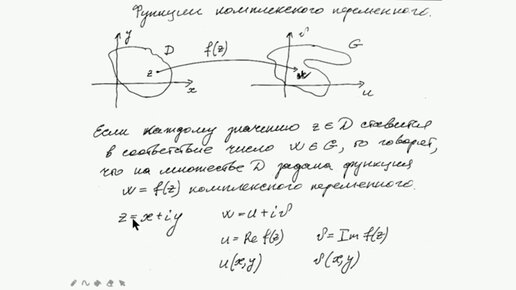 Функции комплексного переменного.
y D f(z) v G
z w
x u
Если каждому значению z ∈ D ставится
в соответствие число w ∈ G, то говорят,
что на множестве D задана функция
w = f(z) комплексного переменного.
z = x + iy w = u + iv
u = Re f(z) v = Im f(z)
u(x,y) v(x,y)